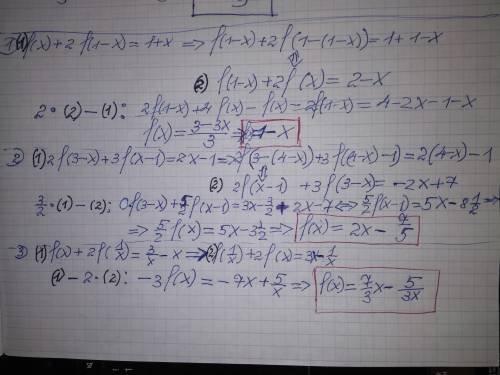 1) (1) f(x)+2f(1-x)=1+x => f(1-x)+2f(1-(1-x))=1+1-x
(2) f(1-x)+2f(x)=2-x
2·(2)-(1): 2f(1-x)+4f(x)-f(x)-2f(1-x)=4-2x-1-x
f(x)=\frac{3-3x}{3} => f(x)=1-x
2) (1) 2f(3-x)+3f(x-1)=2x-1 => 2f(3-(4-x))+3f(4-x-1)=2(4-x)-1
(2) 2f(x-1)+3f(3-x)=-2x+7
\frac{3}{2}·(1)-(2): 0f(3-x)+\frac{5}{2}f(x-1)=3x-\frac{3}{2}+2x-7 <=> \frac{5}{2}f(x-1)=5x-8\frac{1}{2} =>
=> \frac{5}{2}f(x)=5x-3\frac{1}{2} => f(x)=2x-\frac{7}{5}
3) (1) f(x)+2f(\frac{1}{x})=\frac{3}{x}-x => (2) f(\frac{1}{x})+2f(x)=3x-\frac{1}{x}
(1)-2·(2): -3f(x)=-7x+\frac{5}{x} => f(x)=\frac{7}{3}x-\frac{5}{3x}